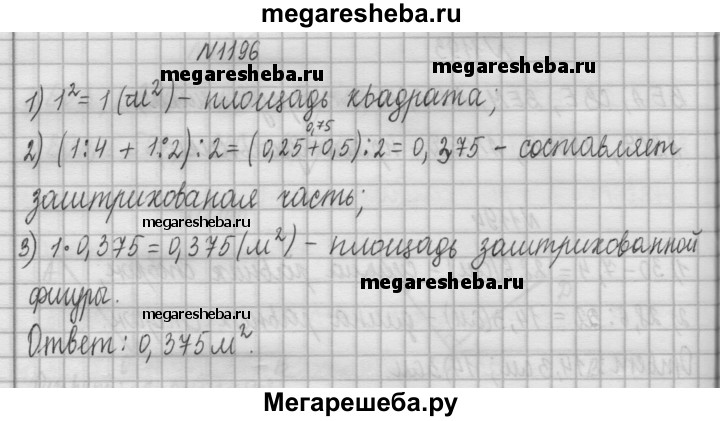 megaresheba.ru
№1196
megaresheba.ru
1) 1² = 1 (м²) – площадь квадрата;
0,75
2) (1:4 + 1:2):2 = (0,25+0,5):2 = 0,375 – составляет
заштрихованая часть;
megaresheba.ru
3) 1·0,375 = 0,375 (м²) – площадь заштрихованной
megaresheba.ru
фигуры.
megaresheba.ru
Ответ: 0,375 м².
Мегарешеба.ру